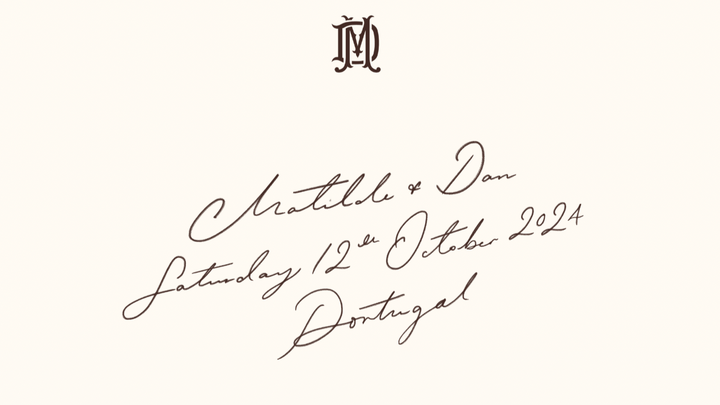 MD
Matilde & Dan
Saturday 12th October 2024
Portugal